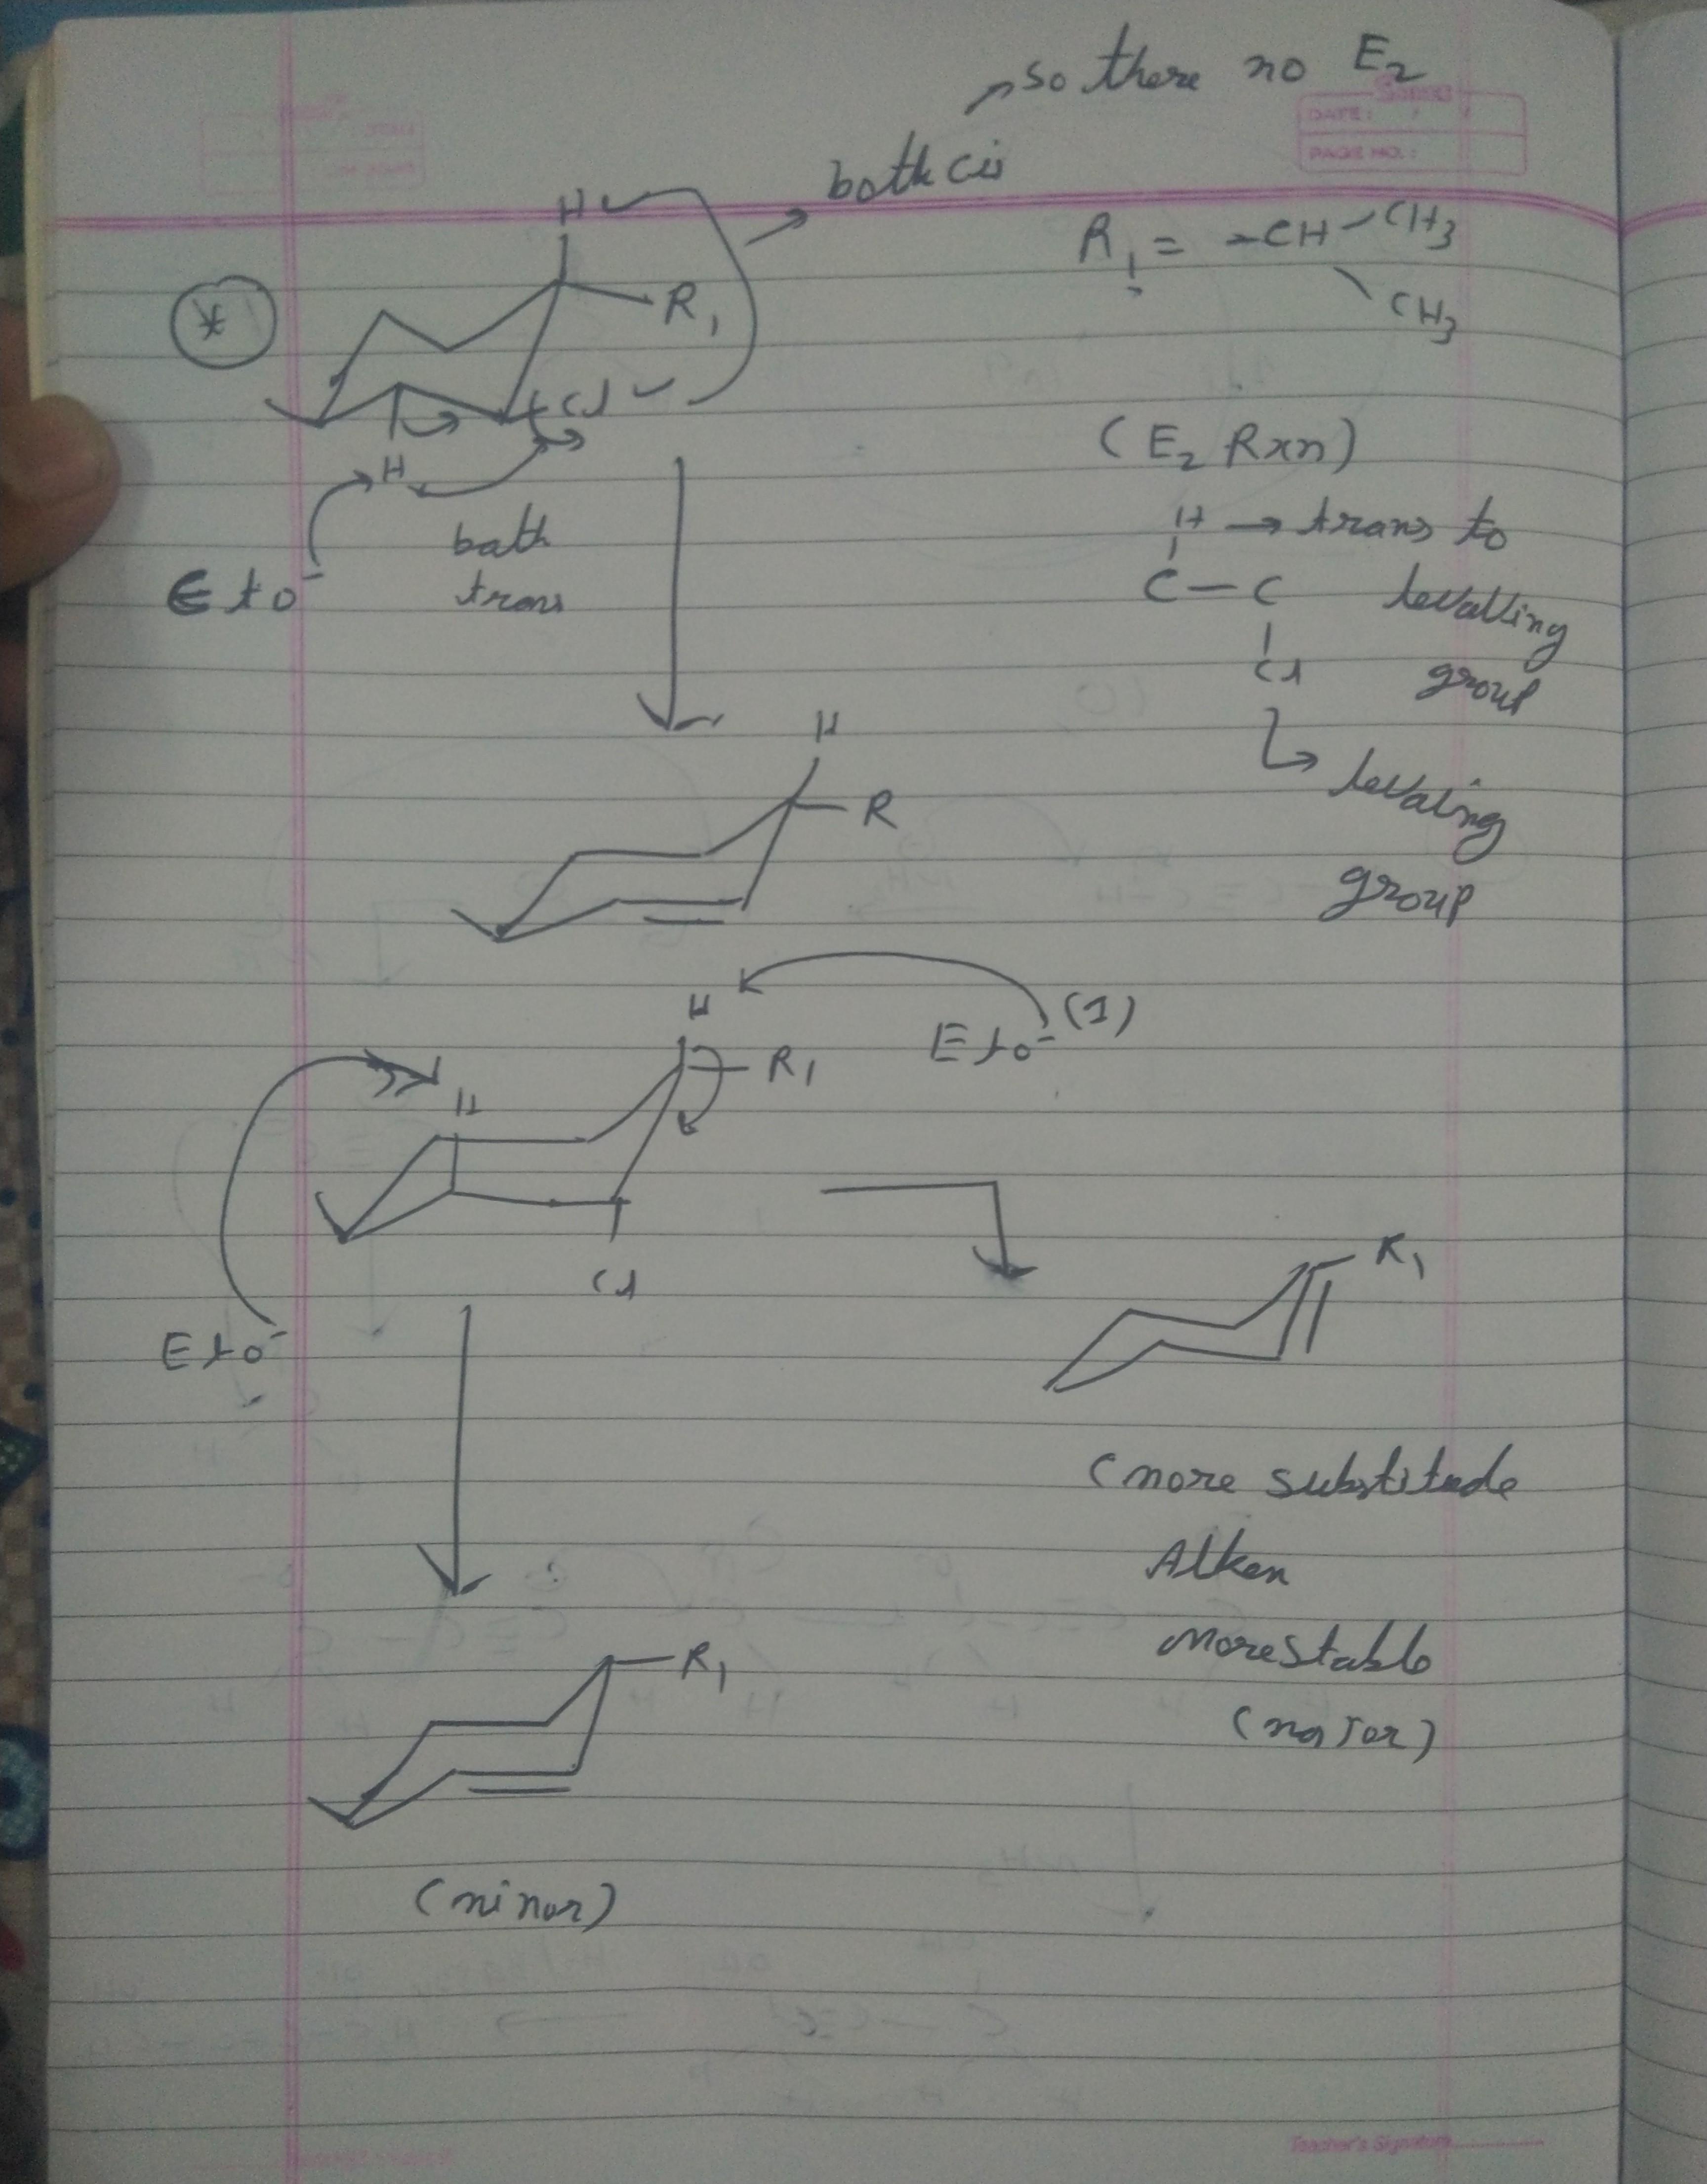 so there no E2
DATE:
PAGE NO.:
both cis
H
R1
Cl
H
EtO-
both
trans
R1 = -CH-CH3
CH3
(E2 Rxn)
H → trans to
C-C levalling
Cl group
levaling
group
H
R
H
R1
EtO- (1)
H
Cl
EtO-
R1
(more substitude
Alken
More Stable
(major)
R1
(minor)
Teacher's Signature